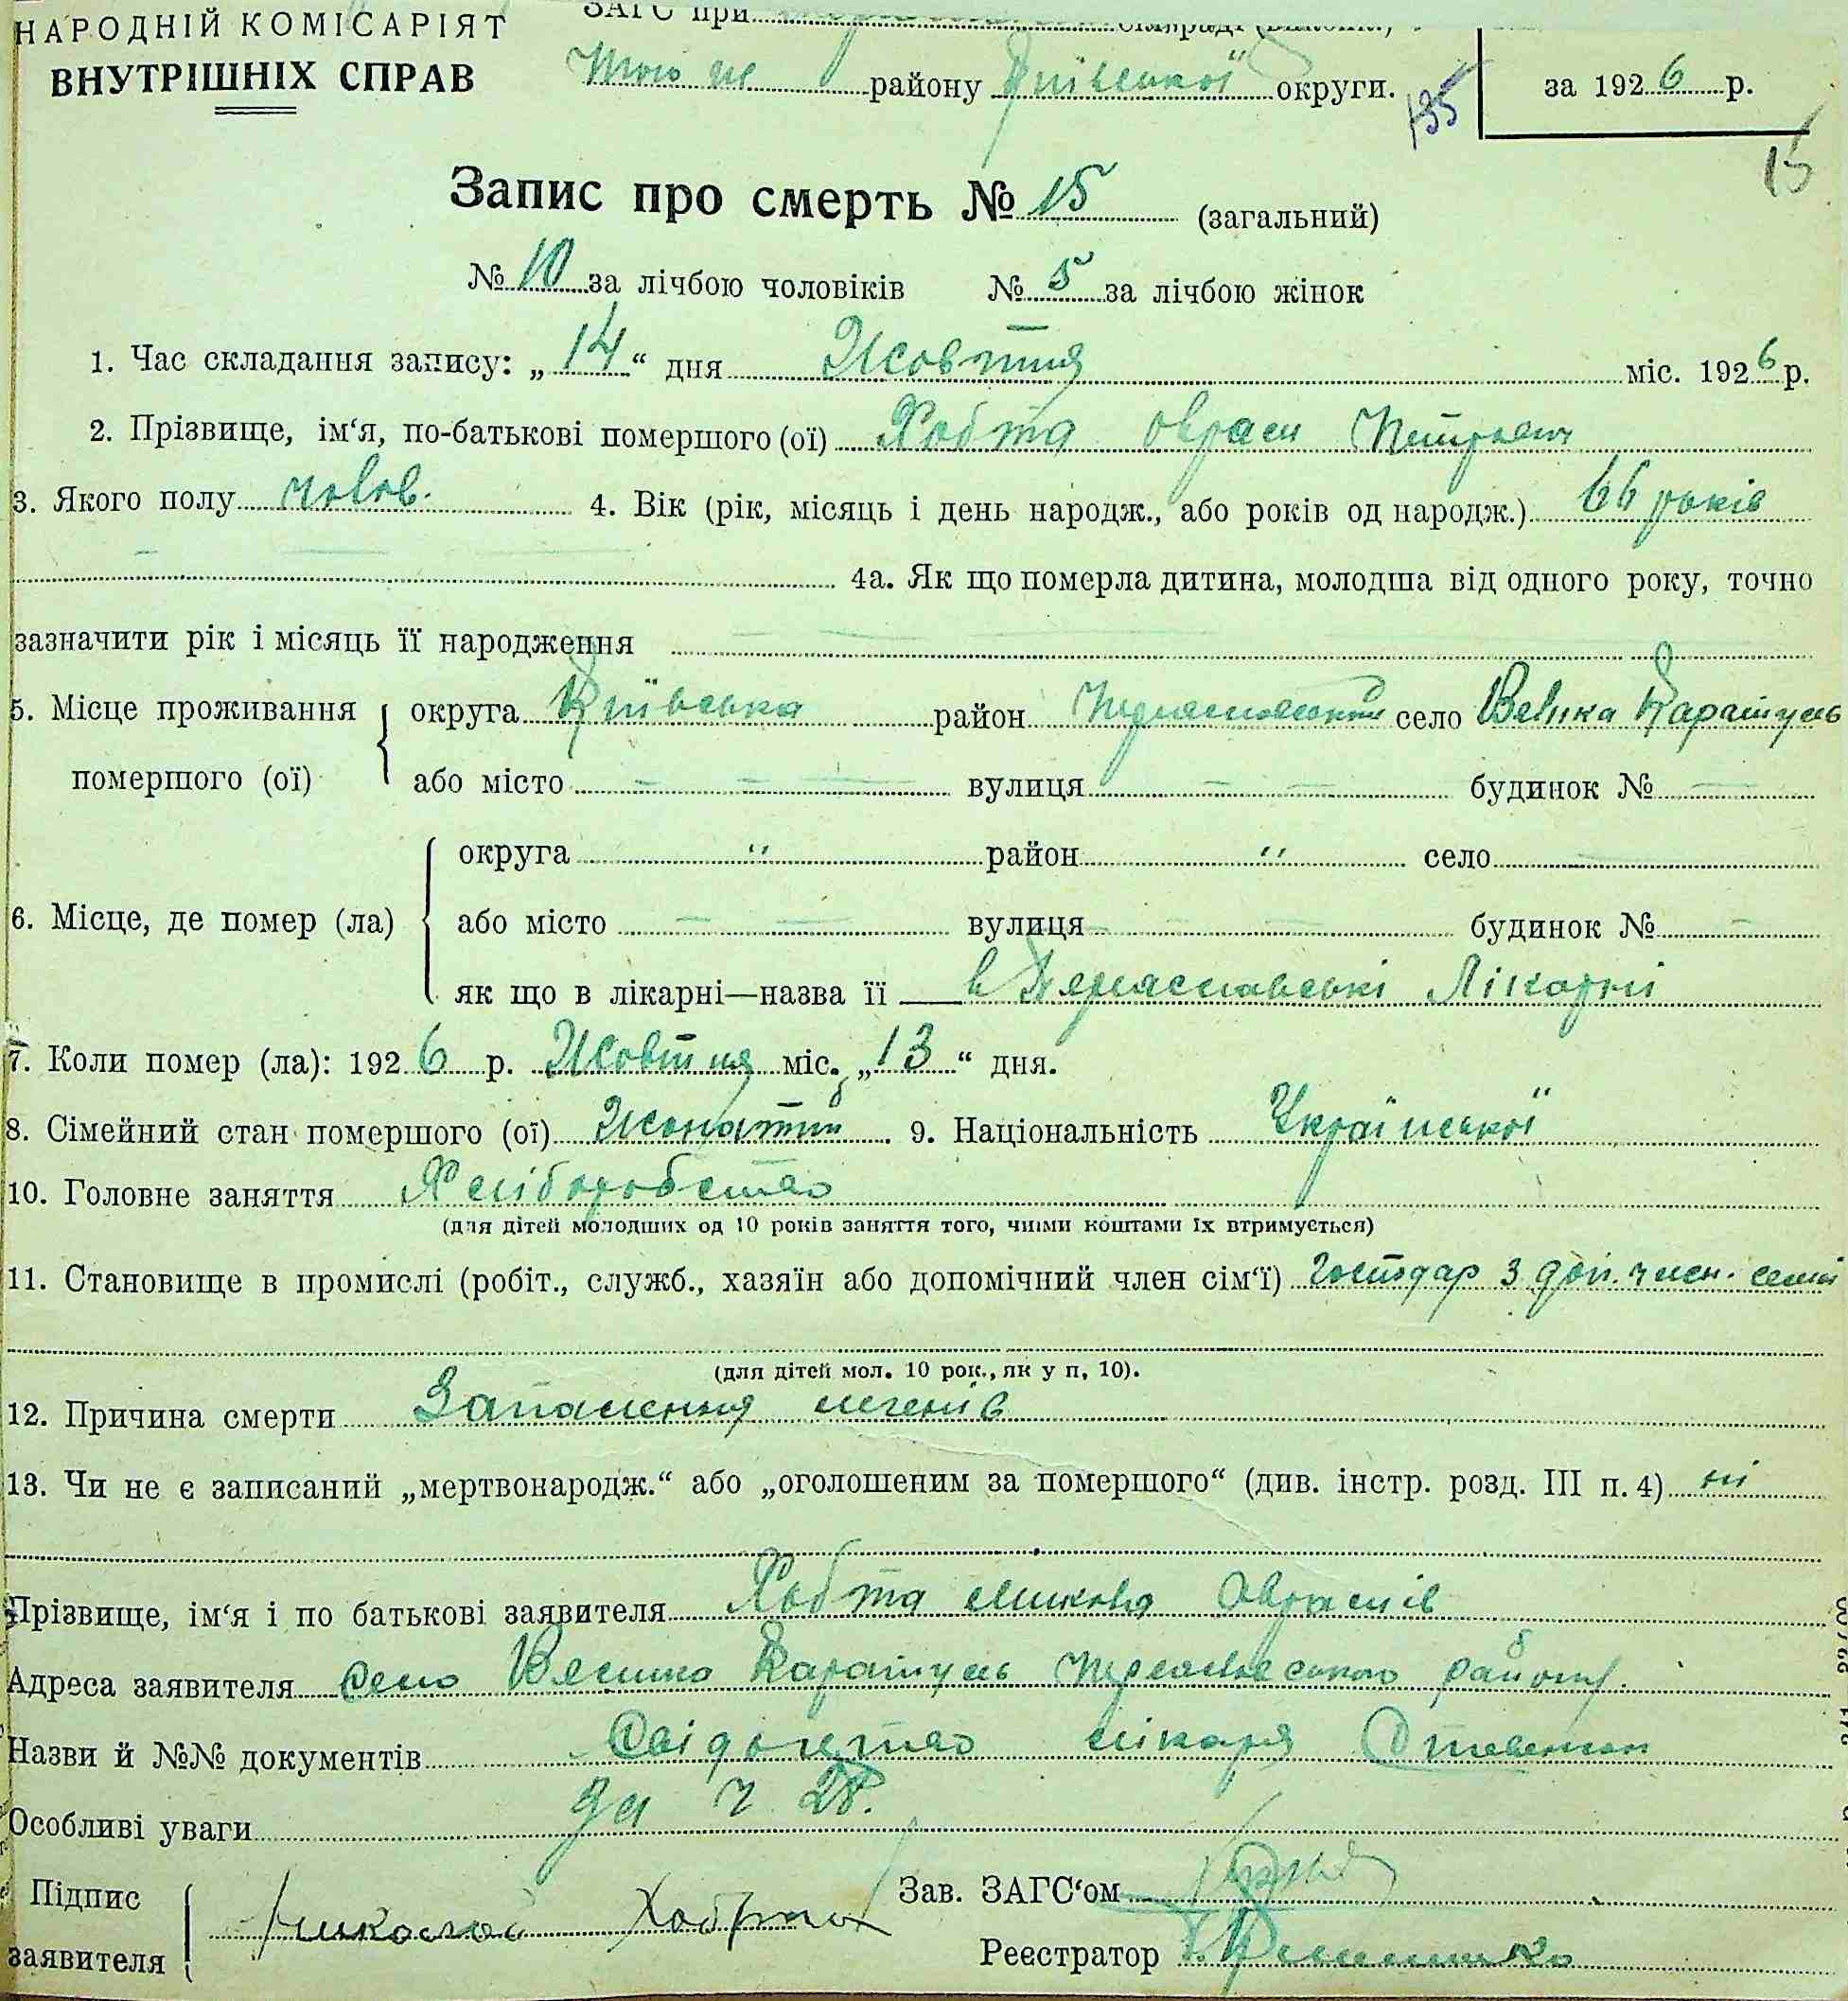 НАРОДНІЙ КОМІСАРІЯТ
ВНУТРІШНІХ СПРАВ
ЗАГС при
Того же району Київської округи.
135
за 1926 р.
15
Запис про смерть № 15 (загальний)
№ 10 за лічбою чоловіків № 5 за лічбою жінок
1. Час складання запису: „14“ дня Жовтня міс. 1926 р.
2. Прізвище, ім‘я, по-батькові помершого (ої) Хобта Оврам Петрович
3. Якого полу чолов. 4. Вік (рік, місяць і день народж., або років од народж.) 66 років
4а. Як що померла дитина, молодша від одного року, точно
зазначити рік і місяць її народження
5. Місце проживання помершого (ої) округа Київська район Переяславський село Велика Каратуль
або місто вулиця будинок №
6. Місце, де помер (ла) округа " район " село
або місто вулиця будинок №
як що в лікарні—назва її в Переяславські Лікарні
7. Коли помер (ла): 1926 р. Жовтня міс. „13“ дня.
8. Сімейний стан помершого (ої) Жонатий 9. Національність Української
10. Головне заняття Хліборобство
(для дітей молодших од 10 років заняття того, чиїми коштами їх втримується)
11. Становище в промислі (робіт., служб., хазяїн або допомічний член сім‘ї) Господар з доп. член. семі
(для дітей мол. 10 рок., як у п, 10).
12. Причина смерти Запалення легенів
13. Чи не є записаний „мертвонародж.“ або „оголошеним за помершого“ (див. інстр. розд. III п. 4) ні
Прізвище, ім‘я і по батькові заявителя Хобта Микола Оврамів
Адреса заявителя Село Велика Каратуль Переяславського району.
Назви й №№ документів Свідоцтво лікаря
за ч 28.
Особливі уваги
Підпис заявителя Николай Хобта
Зав. ЗАГС‘ом
Реєстратор